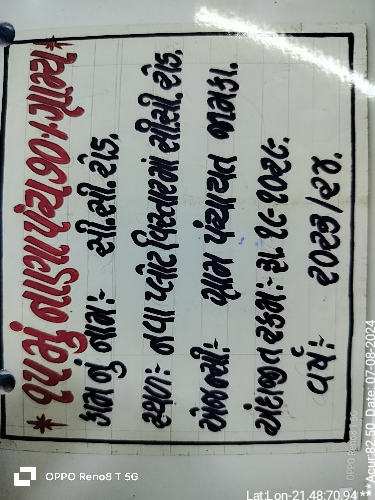 *૧૫મું નાણા પંચ ૧૦% ગ્રામ્ય*
કામ નું નામઃ- સી.સી.રોડ.
સ્થળઃ- નવા પ્લોટ વિસ્તારમાં સીસી. રોડ.
એજન્સીઃ- ગ્રામ પંચાયત જામકા.
અંદાજીત રકમઃ- રૂા. ૧૯૧૦૨૯.
વર્ષઃ- ૨૦૨૩/૨૪.
OPPO Reno8 T 5G
Lat:Lon-21.48:70.94 **Acur:82.50 Date: 07-08-2024